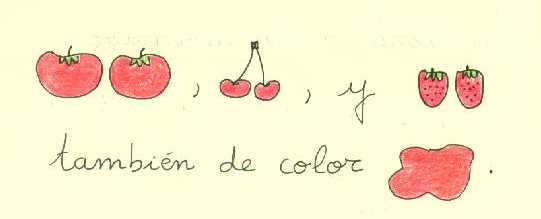 , , y
también de color .